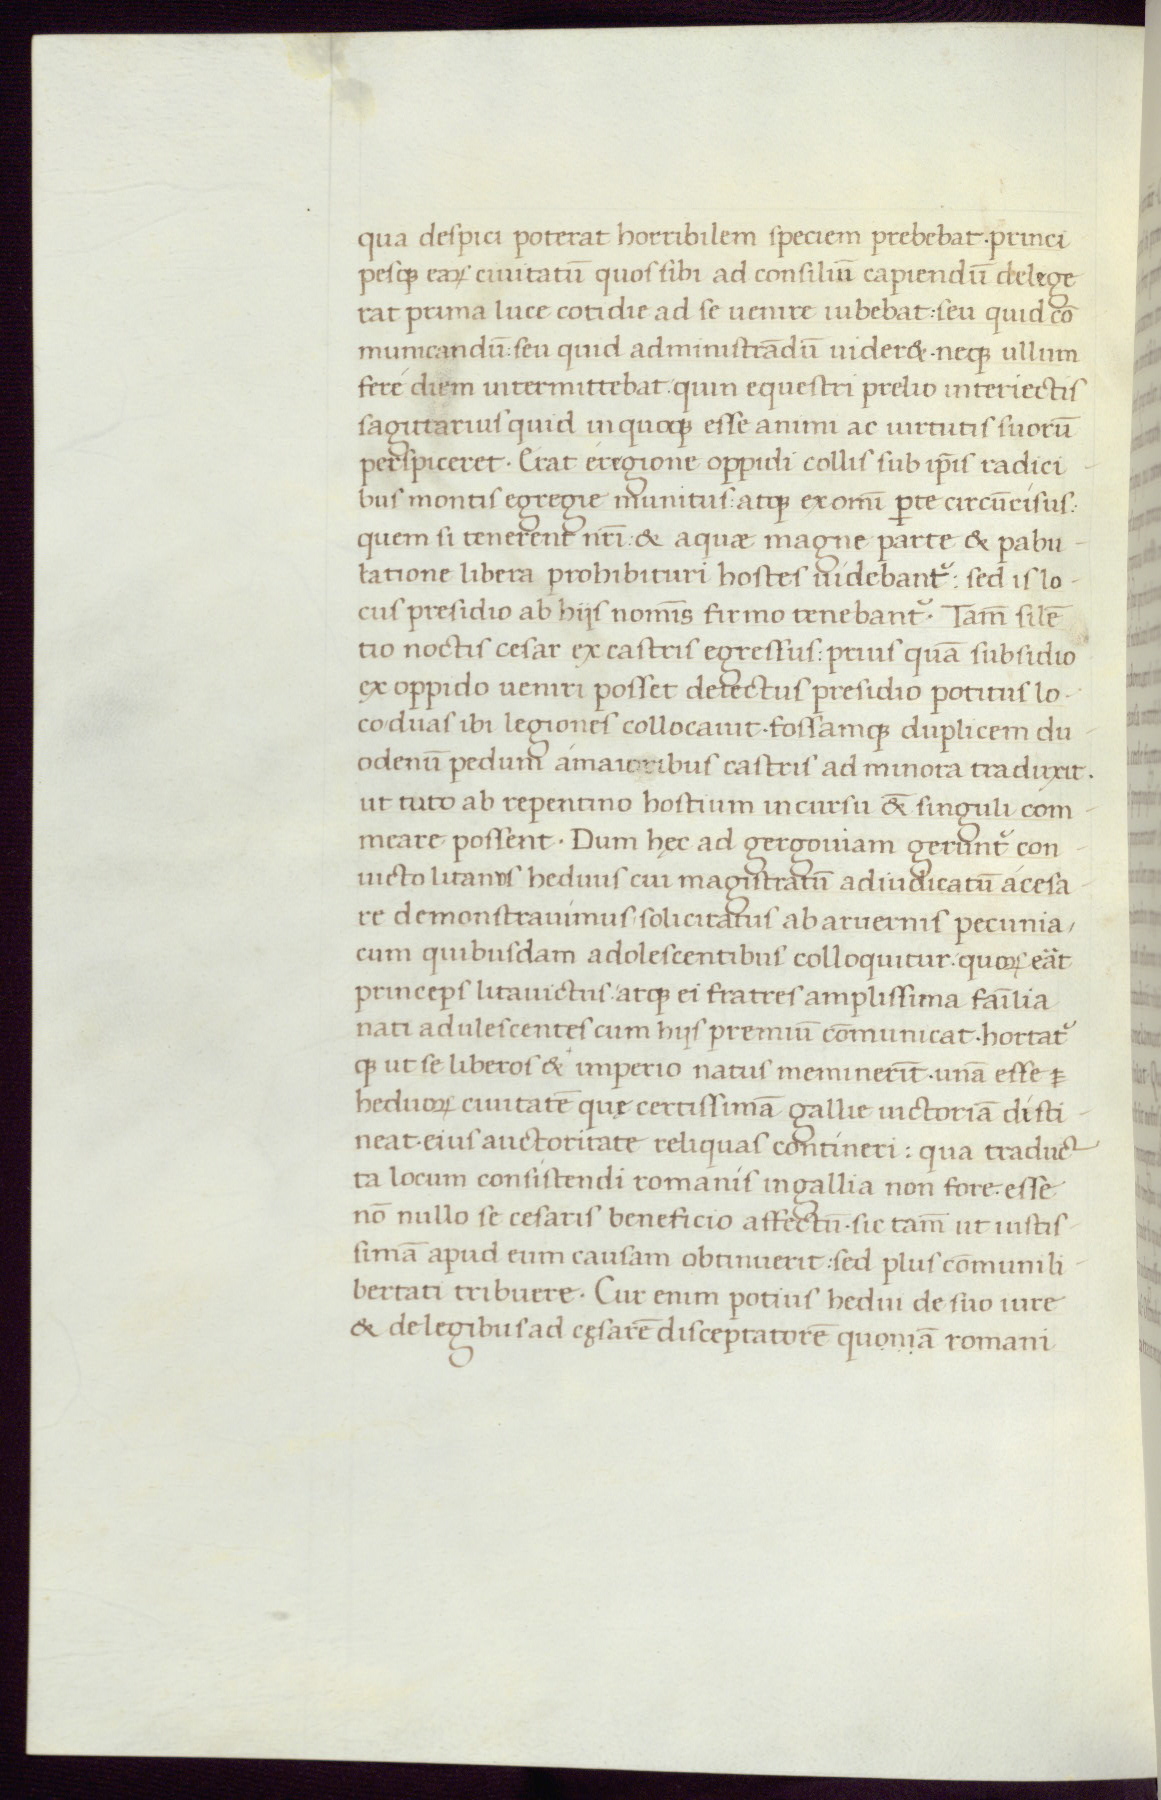 qua despici poterat horribilem speciem prebebat · princi
pesqꝫ eaꝝ ciuitatū quos sibi ad consiliū capiendū delege
rat prima luce cotidie ad se uenire iubebat : seu quid cō
municandū : seu quid administrādū uider& · neqꝫ ullum
fere diem intermittebat · quin equestri prelio interiectis
sagittariis quid in quoqꝫ esse animi ac uirtutis suorū
perspiceret · Erat eregione oppidi collis sub ip̄is radici
bus montis egregie munitus : atqꝫ ex omī ꝑte circūcisus :
quem si tenerent nr̄i : & aquæ magne parte & pabu-
latione libera prohibituri hostes uidebant᷑ : sed is lo-
cus presidio ab hijs nomīs firmo tenebant᷑ · Tam̄ silē
tio noctis cesar ex castris egressus : prius quā subsidio
ex oppido ueniri posset deiectus presidio potitus lo-
co duas ibi legiones collocauit · fossamqꝫ duplicem du-
odenū pedum amaioribus castris ad minora traduxit ·
ut tuto ab repentino hostium incursu &̄ singuli com-
meare possent · Dum hęc ad gergouiam gerunt᷑ con-
uictolitanis heduus cui magistratū adiudicatū acesa-
re demonstrauimus / solicitatus ab aruernis pecunia /
cum quibusdam adolescentibus colloquitur · quoꝝ eāt
princeps litauictus / atqꝫ ei fratres amplissima fāilia
nati adulescentes cum hijs premiū cōmunicat · hortat᷑
qꝫ ut se liberos & imperio natus meminerīt · unā esse ꝑ
heduoꝝ ciuitatē quę certissimā gallie uictoriā disti-
neat · eius auctoritate reliquas contineri : qua traduc
ta locum consistendi romanis in gallia non fore · esse
nō nullo se cesaris beneficio affectū · sic tam̄ ut iustis-
simā apud eum causam obtinuerit : sed plus cōmuni li-
bertati tribuere · Cur enim potius hedui de suo iure
& de legibus ad cęsarē disceptatorē quoniā romani